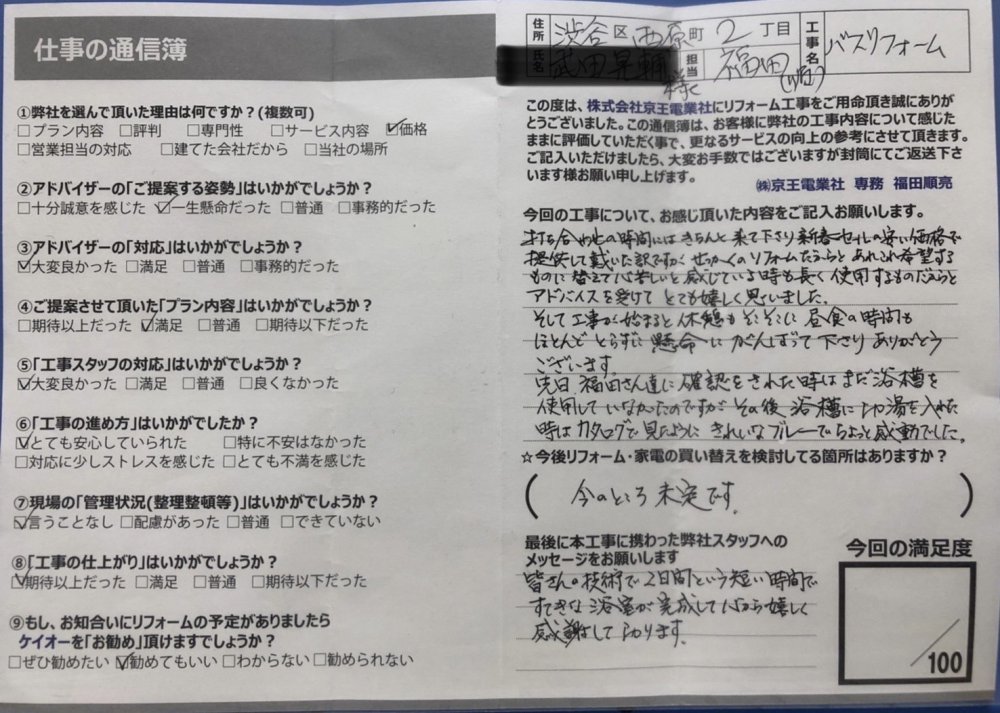 仕事の通信簿
①弊社を選んで頂いた理由は何ですか？(複数可)
□プラン内容 □評判 □専門性 □サービス内容 ☑価格
□営業担当の対応 □建てた会社だから □当社の場所
②アドバイザーの「ご提案する姿勢」はいかがでしょうか？
□十分誠意を感じた ☑一生懸命だった □普通 □事務的だった
③アドバイザーの「対応」はいかがでしょうか？
☑大変良かった □満足 □普通 □事務的だった
④ご提案させて頂いた「プラン内容」はいかがでしょうか？
□期待以上だった ☑満足 □普通 □期待以下だった
⑤「工事スタッフの対応」はいかがでしょうか？
☑大変良かった □満足 □普通 □良くなかった
⑥「工事の進め方」はいかがでしたか？
☑とても安心していられた □特に不安はなかった
□対応に少しストレスを感じた □とても不満を感じた
⑦現場の「管理状況(整理整頓等)」はいかがでしょうか？
☑言うことなし □配慮があった □普通 □できていない
⑧「工事の仕上がり」はいかがでしょうか？
☑期待以上だった □満足 □普通 □期待以下だった
⑨もし、お知合いにリフォームの予定がありましたら
ケイオーを「お勧め」頂けますでしょうか？
□ぜひ勧めたい ☑勧めてもいい □わからない □勧められない
住所 渋谷区西原町2丁目
氏名 様 担当 福田
工事名 バスリフォーム
この度は、株式会社京王電業社にリフォーム工事をご用命頂き誠にありが
とうございました。この通信簿は、お客様に弊社の工事内容について感じた
ままに評価していただく事で、更なるサービスの向上の参考にさせて頂きます。
ご記入いただけましたら、大変お手数ではございますが封筒にてご返送下さ
います様お願い申し上げます。
㈱京王電業社 専務 福田順亮
今回の工事について、お感じ頂いた内容をご記入お願いします。
打ち合わせの時間にはきちんと来て下さり新春セールの安い価格で
提供して戴いた訳ですが せっかくのリフォームだからとあれこれ希望する
ものに替えて心苦しいと感じている時も長く使用するものだからと
アドバイスを受けて とても嬉しく思いました。
そして工事が始まると休憩もそこそこに 昼食の時間も
ほとんどとらずに 懸命に がんばって下さり ありがとう
ございます。
先日 福田さん達に確認をされた時はまだ浴槽を
使用していなかったのですが その後 浴槽にお湯を入れた
時はカタログで見たように きれいなブルーでちょっと感動でした。
☆今後リフォーム・家電の買い替えを検討してる箇所はありますか？
(今のところ 未定です。)
最後に本工事に携わった弊社スタッフへの
メッセージをお願いします
皆さんの技術で2日間という短い時間で
すてきな浴室が完成して心から嬉しく
感謝しております。
今回の満足度
/100